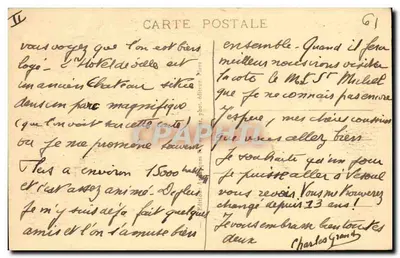 II
CARTE POSTALE
61
vous voyez que l'on est bien
logé. L'Hotel de ville est
un ancien Chateau situé
dans un parc magnifique
(que l'on voit sur cette carte)
ou je me promène souvent.
a environ 15000
et c'est assez animé. De plus
je m'y suis déjà fait quelques
amis et l'on s'amuse bien
ensemble. Quand il fera
meilleur nous irons visiter
la cote le Mt St Michel
que je ne connais pas encore
J'espère, mes chères cousines
que vous allez bien
Je souhaite qu'un jour
je puisse aller à Vesoul
vous revoir. Vous me trouverez
changé depuis 13 ans!
Je vous embrasse bien toutes
deux
Charles